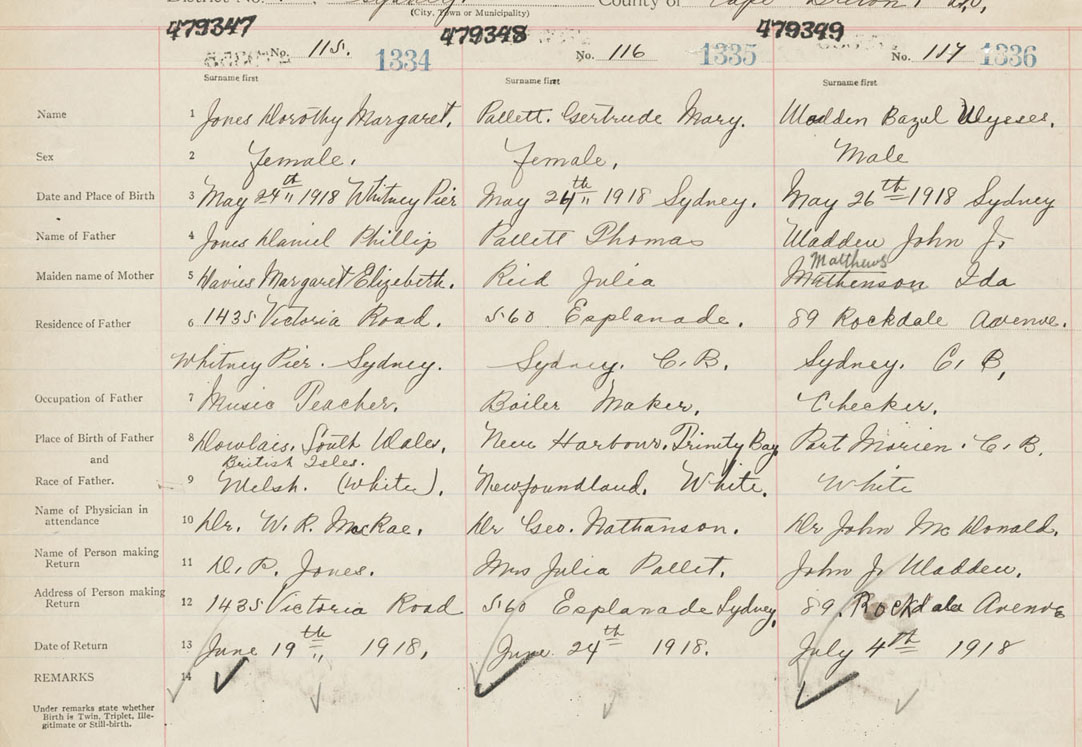 Sydney. County of Cape Breton
(City, Town or Municipality)
479347 479348 479349
No. 115. 1334 No. 116 1335 No. 117 1336
Surname first Surname first Surname first
Name 1 Jones Dorothy Margaret. Pallett. Gertrude Mary. Madden Bazel Ulysses.
Sex 2 female. female. Male
Date and Place of Birth 3 May 24th 1918 Whitney Pier May 24th 1918 Sydney. May 26th 1918 Sydney
Name of Father 4 Jones Daniel Phillip Pallett Thomas Madden John J.
Matthews
Maiden name of Mother 5 Davies Margaret Elizabeth. Reid Julia Mathenson Ida
Residence of Father 6 1435 Victoria Road. 560 Esplanade. 89 Rockdale Avenue.
Whitney Pier. Sydney. Sydney. C.B. Sydney. C.B.
Occupation of Father 7 Music Teacher. Boiler Maker. Checker.
Place of Birth of Father 8 Dowlais. South Wales. New Harbour. Trinity Bay Port Morien. C.B.
and British Isles.
Race of Father. 9 Welsh. (White). Newfoundland. White. White
Name of Physician in
attendance 10 Dr. W. R. McRae. Dr Geo. Nathanson. Dr John McDonald.
Name of Person making
Return 11 D. P. Jones. Mrs Julia Pallet. John J. Madden.
Address of Person making
Return 12 1435 Victoria Road 560 Esplanade Sydney. 89. Rockdale Avenue
Date of Return 13 June 19th 1918. June 24th 1918. July 4th 1918
REMARKS 14
Under remarks state whether
Birth is Twin, Triplet, Ille-
gitimate or Still-birth.